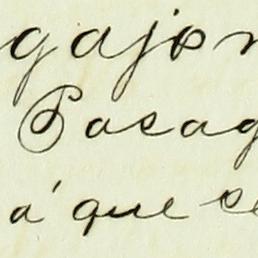 gajon
Pasag
á que se